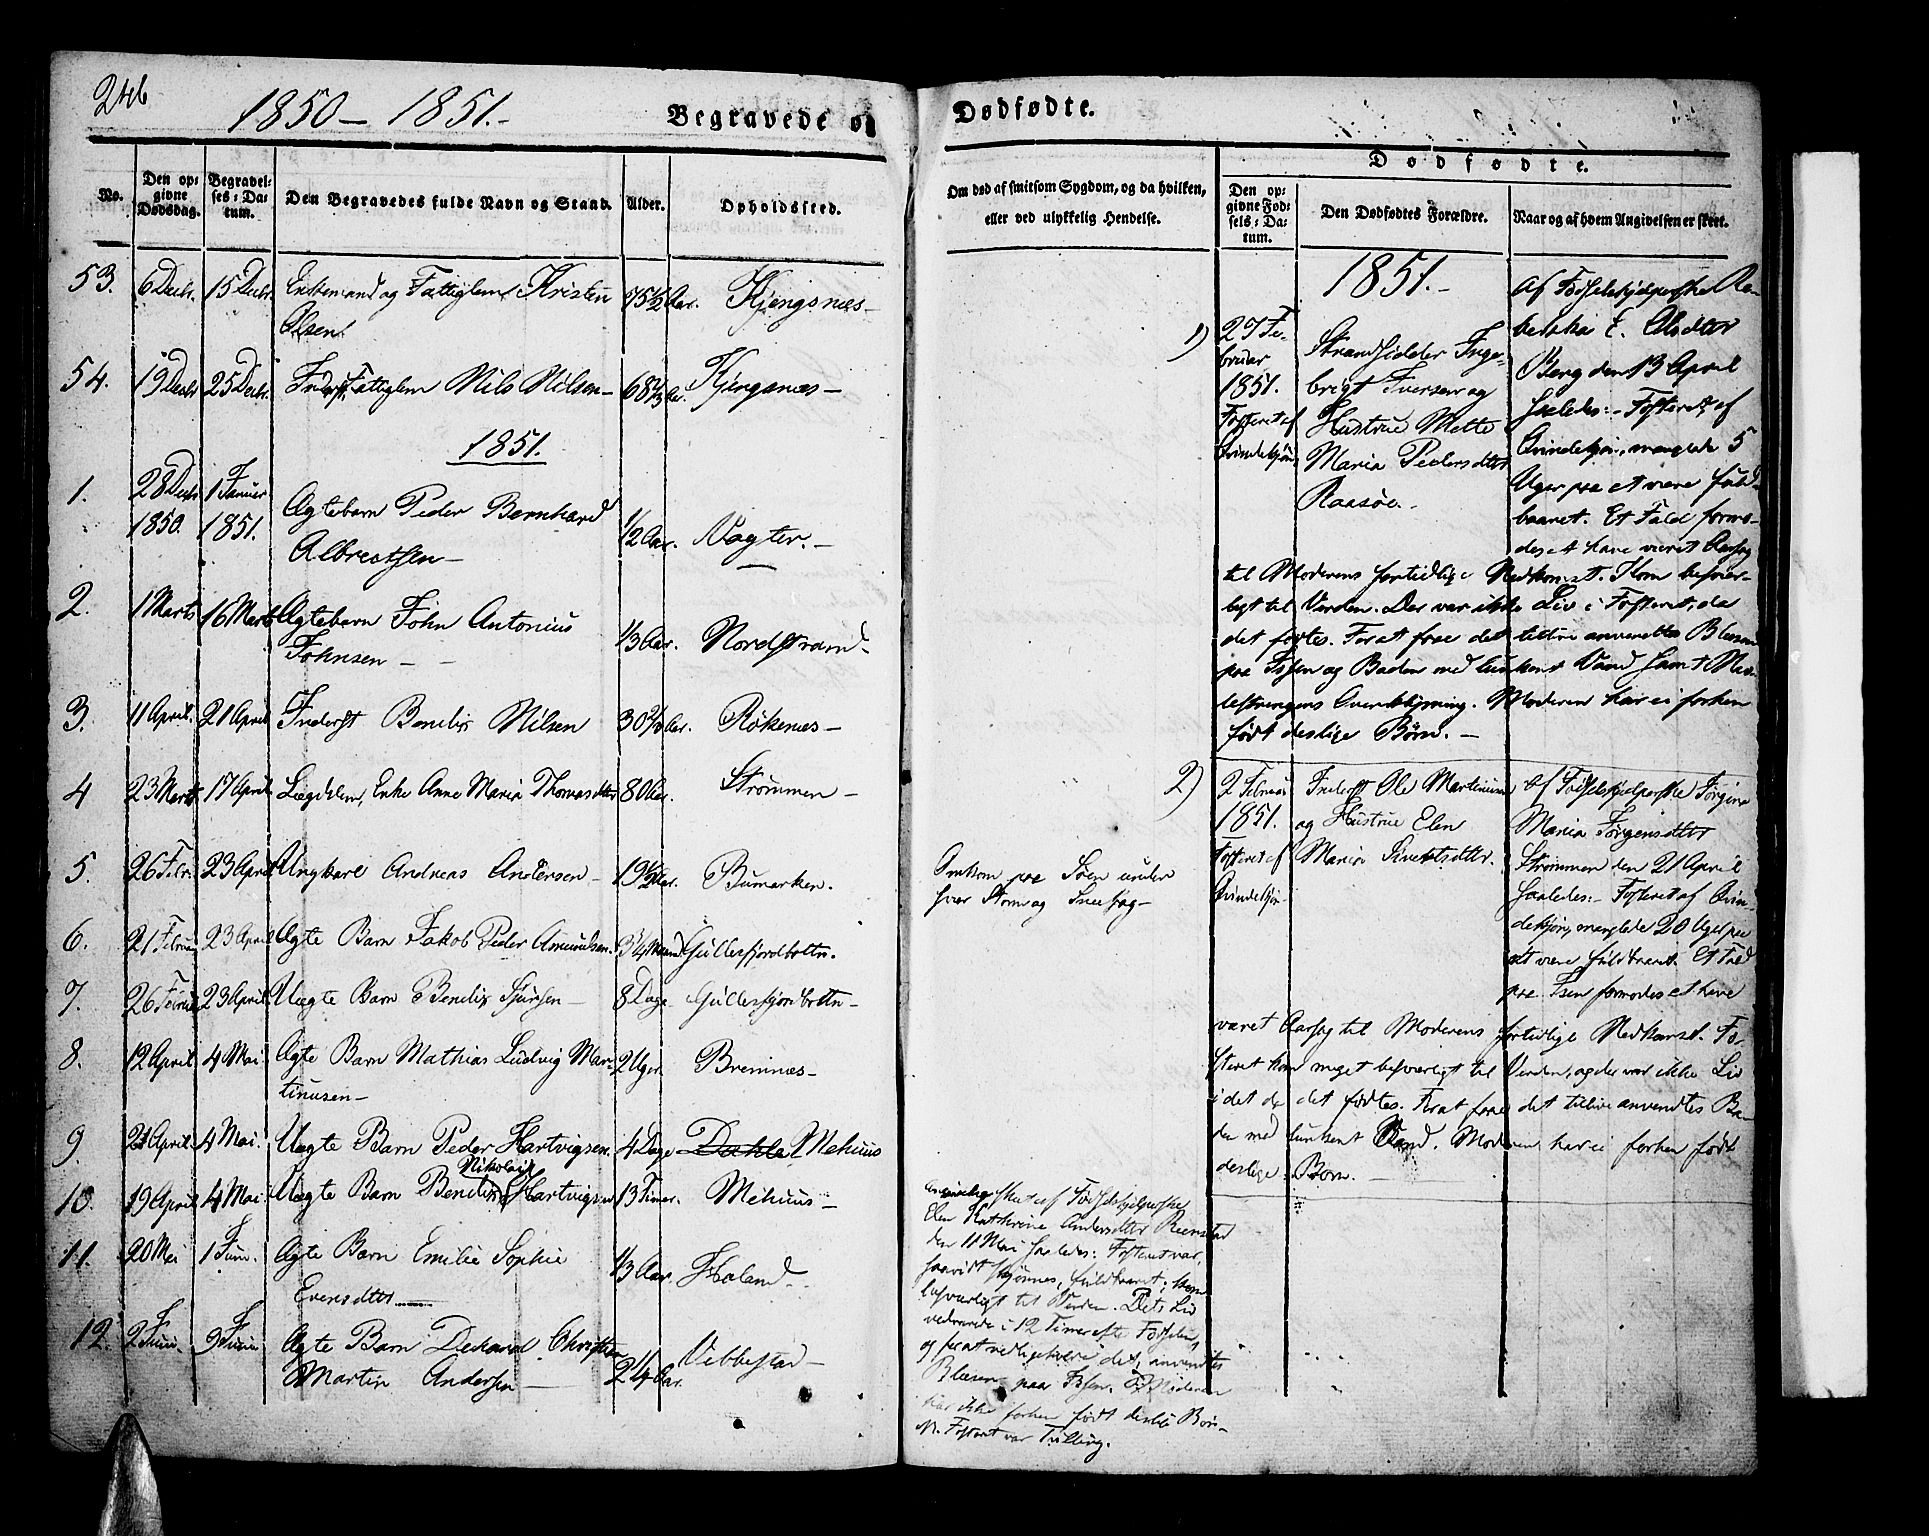 246
1850 – 1851.
Begravede og
No.
Den opgivne Dødsdag.
Begravelses-Datum.
Den Begravedes fulde Navn og Stand.
Alder.
Opholdssted.
53. 6 Decbr. 15 Decbr. Enkemand og Fattiglem Kristen 75½ Aar. Kjengsnæs –
Olsen.
54. 19 Decbr 25 Decbr. Inderst, Fattiglem Nils Nilsen – 68 Aar. Kjengsnæs –
1851.
1. 28 Decbr 1 Januar
1850. 1851. Ægtebarn Peder Bernhard
Albrectsen – 1/2 Aar. Vogter. –
2. 1 Marts 16 Marts Ægtebarn John Antonius
Johnsen – – 1/3 Aar. Nordstrand –
3. 11 April. 21 April Inderst Bendix Nilsen 30 Aar. Rökenæs –
4 23 Marts 17 April. Lægdslem, Enke Anne Maria Thomasdtter 80 Aar. Strømmen –
5. 26 Febr. 23 April Ungkarl Andreas Andersen – 19½ Aar. Bumarken.
6. 21 Februar 23 April Ægte Barn Jakob Peder Amundsen. 3¼ Maaned Gullesfjordbottn.
7. 26 Februar 23 April. Uægte Barn Bendix Sjursen – 8 Dage Gullesfjordbottn –
8. 12 April 4 Mai Ægte Barn Mathias Ludvig Mar- 2 Uger. Bremnæs –
tinusen –
9. 21 April 4 Mai. Uægte Barn Peder Hartvigsen. 4 Dage Dahle Mehuus
Nikolai
10. 19 April 4 Mai Uægte Barn Bendix Hartvigsen 13 Timer. Mehuus –
11. 20 Mai 1 Juni. Ægte Barn Emilie Sophie
Evensdtter 1/3 Aar Holand –
12. 2 Juni 9 Juni Ægte Barn Dekard Christian
Martin Andersen – 2 1/4 Aar. Vebbestad –
Dødfødte.
Om død af smitsom Sygdom, og da hvilken,
eller ved ulykkelig Hendelse.
Dødfødte.
Den opgivne Fødsels-Datum.
Den Dødfødtes Forældre.
Naar og af hvem Angivelsen er skeet.
Omkom paa Søen under
svær Storm og Sneefog –
Angivelse skeet af Födselshjelperske
Elen Kathrine Andersdtter Reenstad
den 11 Mai saaledes: Fosteret var,
saavidt skjønnes, fuldbaaret; kom
besværligt til Verden. Dets Liv
vedvarede i 12 Timer efter Fødselen,
og for at vedligeholde det, anvendtes
Blæsen paa Issen. Moderen
har ikke forhen født deslige Børn
N. Fosteret var Tvilling.
1851. –
1) 27 Fe-
bruar
1851.
Fosteret af
Qvindekjön
Strandsidder Inge-
brigt Iversen og
Hustrue Mette
Maria Pedersdtter
Raasöe. –
af Fødselshjelperske Re-
bekka E. Olsdtter
Berg den 13 April
saaledes: – Fosteret, af
Qvindekjön, manglede 5
Uger paa at være fuld-
baaret. Et Fald formo-
des at have været Aarsag
til Moderens fortidlige Nedkomst. Kom besvær-
ligt til Verden. Der var ikke Liv i Fosteret, da
det fødtes. For at faae det tillive anvendtes Blæsen
paa Issen og Baden med lunkent Vand samt Nav-
lestrengens Overklipning. Moderen har ei forhen
født deslige Børn. –
2) 2 Februar
1851.
Fosteret af
Qvindekjön
Inderst Ole Martinusen
og Hustrue Elen
Maria Sivertsdtter.
af Fødselshjelperske Jørgine
Maria Jørgensdtter
Strømmen den 21 April
saaledes: – Fosteret af Qvin-
dekjön, manglede 20 Uger paa
at være fuldbaaret. Et Fald
paa Isen formodes at have
været Aarsag til Moderens fortidlige Nedkomst. Fo-
steret kom meget besværligt til Verden, og der var ikke Liv
i det da det fødtes. For at faae det tillive anvendtes Ba-
den med lunkent Vand. Moderen har ei forhen født
deslige Børn. –